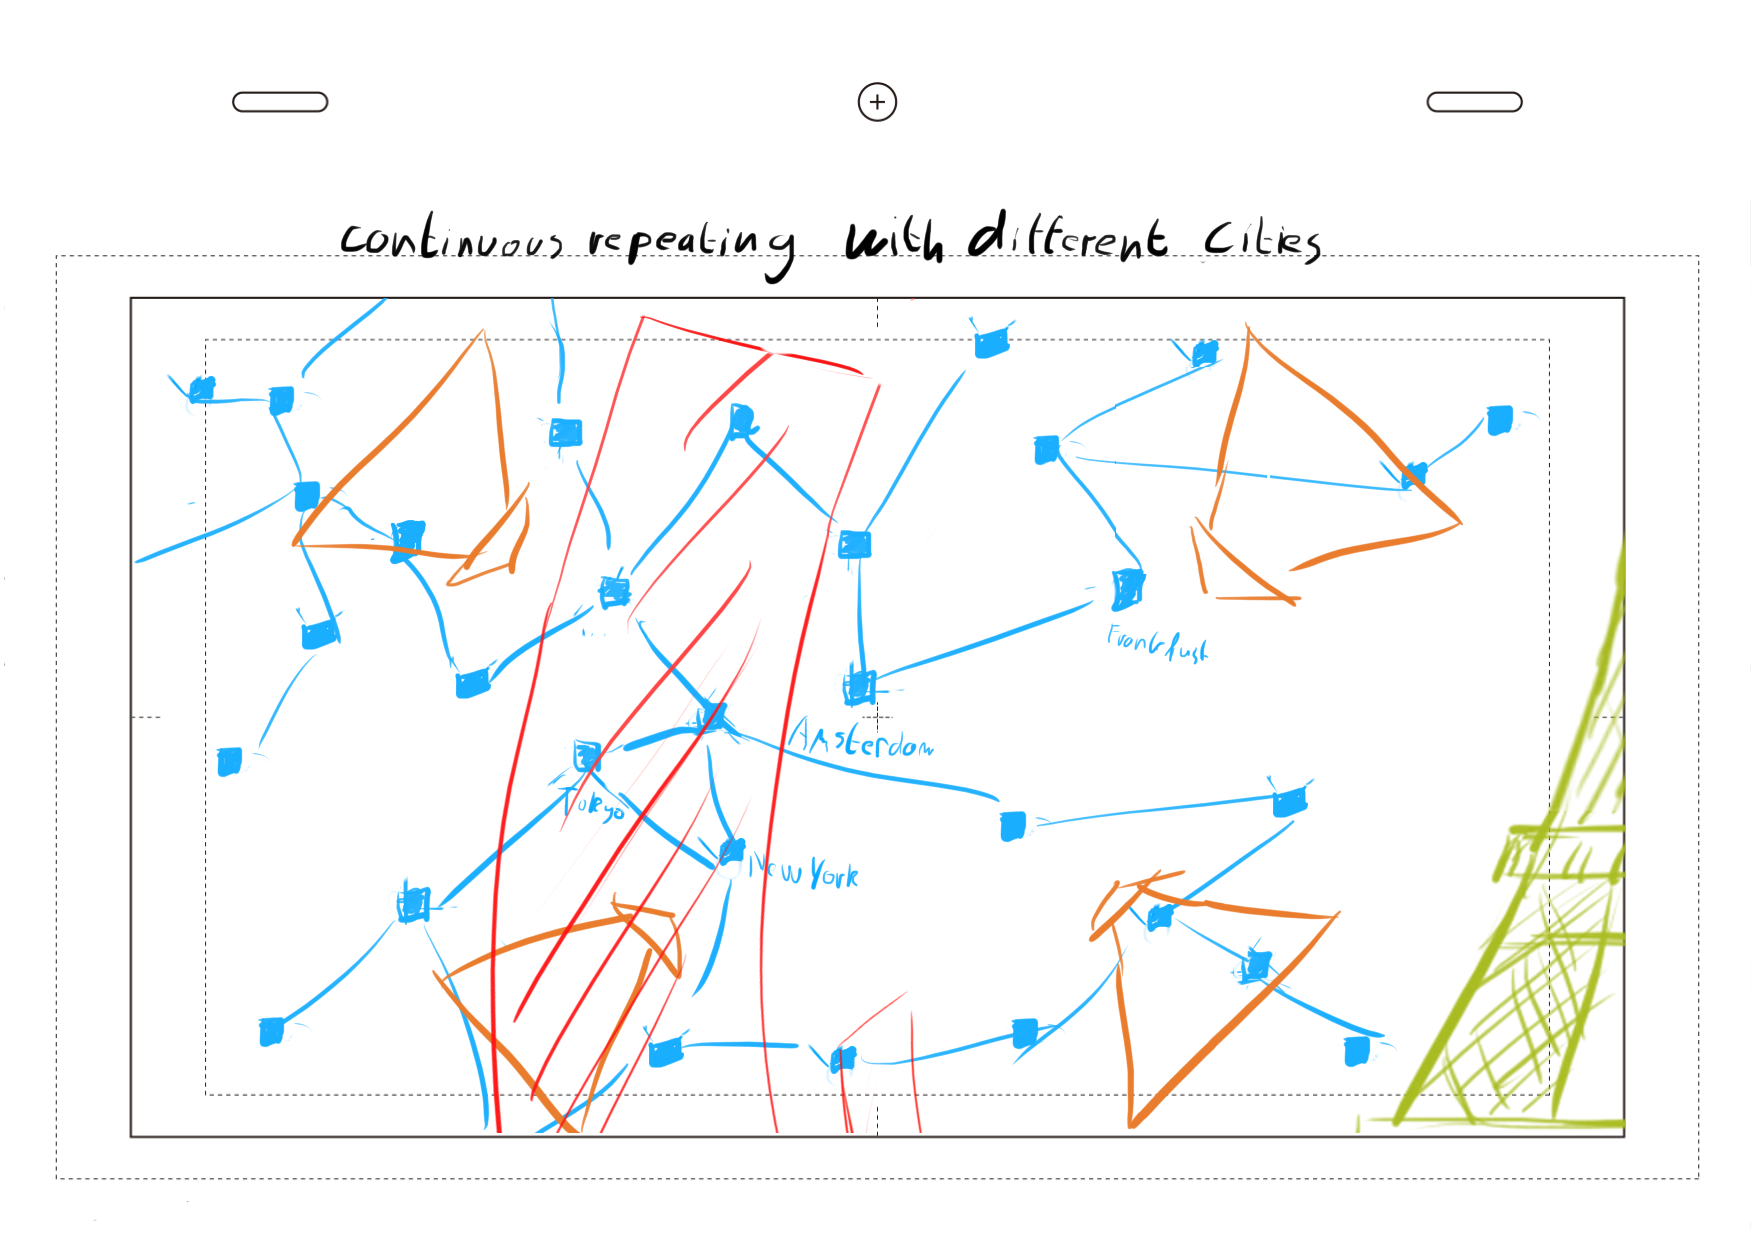 continuous repeating with different Cities
Frankfust
Amsterdam
Tokyo
New York